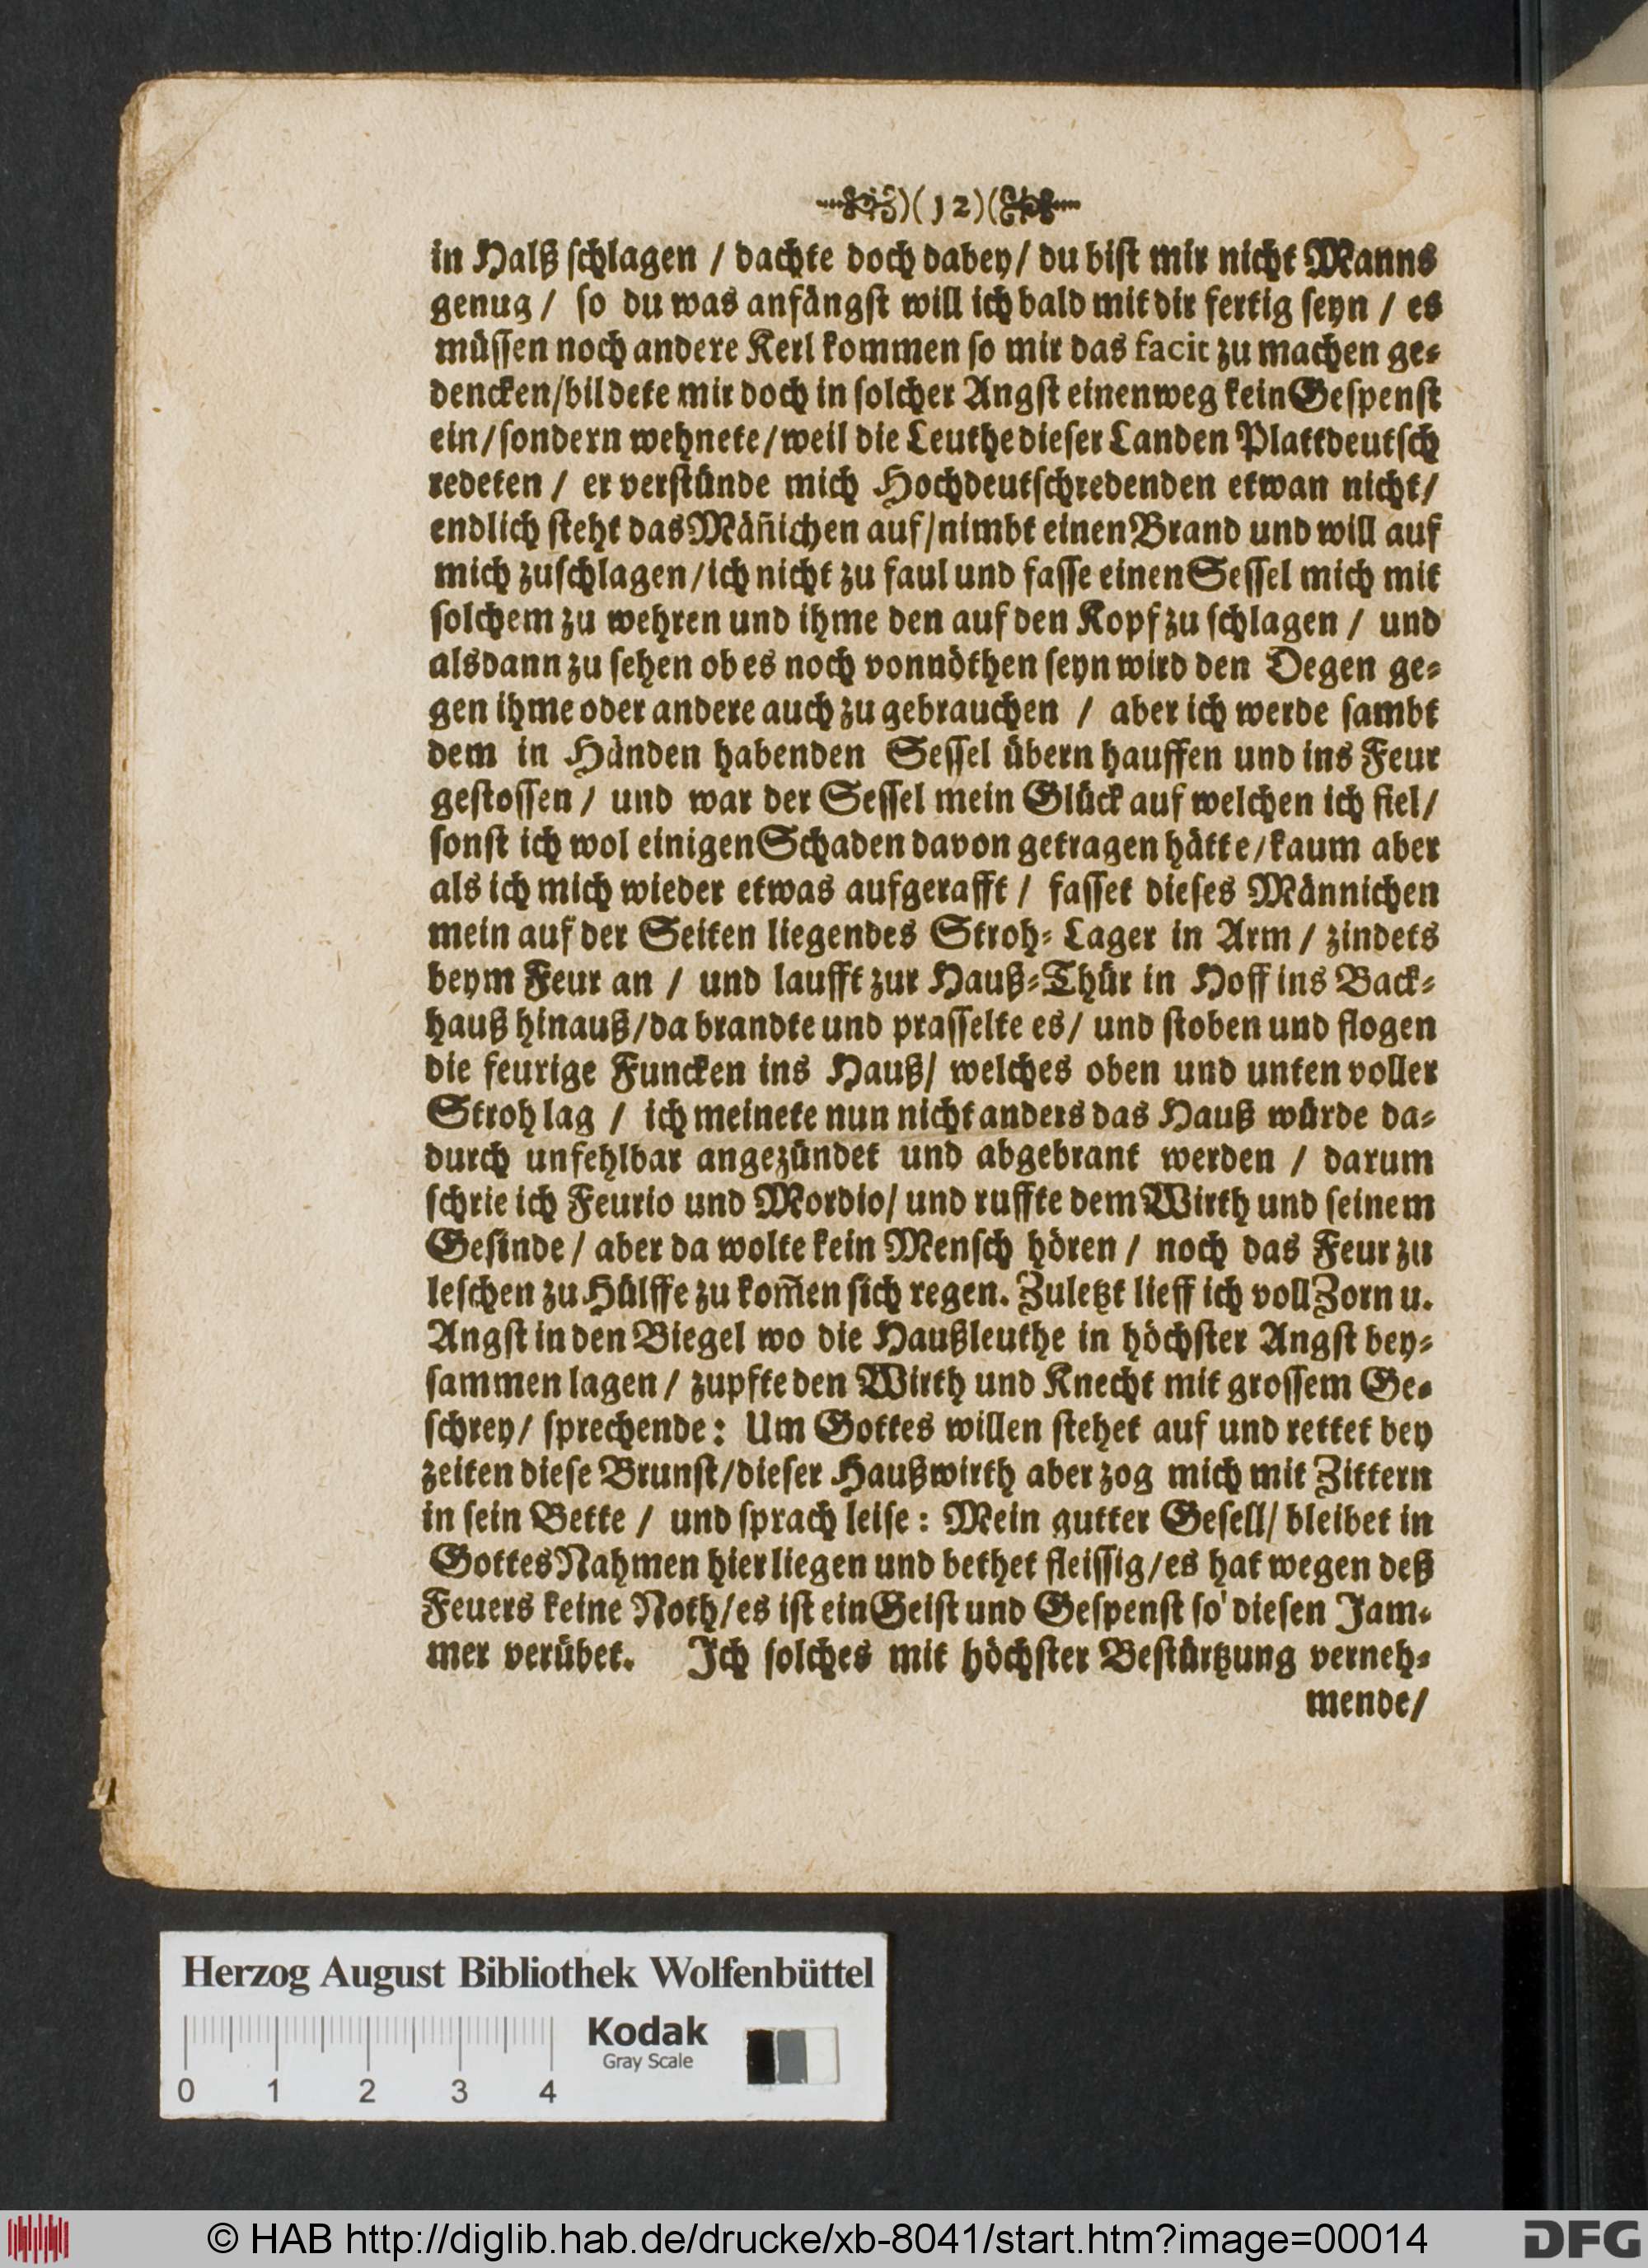 )(12)(
in Halß ſchlagen / dachte doch dabey/ du biſt mir nicht Manns
genug / ſo du was anfängſt will ich bald mit dir fertig ſeyn / es
müſſen noch andere Kerl kommen ſo mir das facit zu machen ge-
dencken/bildete mir doch in ſolcher Angſt einenweg kein Geſpenſt
ein/ſondern wehnete/weil die Leuthe dieſer Landen Plattdeutſch
redeten / er verſtünde mich Hochdeutſchredenden etwan nicht/
endlich ſteht das Mäñichen auf/nimbt einen Brand und will auf
mich zuſchlagen/ich nicht zu faul und faſſe einen Seſſel mich mit
ſolchem zu wehren und ihme den auf den Kopf zu ſchlagen / und
alsdann zu ſehen ob es noch vonnöthen ſeyn wird den Degen ge-
gen ihme oder andere auch zu gebrauchen / aber ich werde ſambt
dem in Händen habenden Seſſel übern hauffen und ins Feur
geſtoſſen / und war der Seſſel mein Glück auf welchen ich fiel/
ſonſt ich wol einigen Schaden davon getragen hätte/kaum aber
als ich mich wieder etwas aufgerafft / faſſet dieſes Männichen
mein auf der Seiten liegendes Stroh-Lager in Arm / zindets
beym Feur an / und laufft zur Hauß-Thür in Hoff ins Back-
hauß hinauß/da brandte und praſſelte es/ und ſtoben und flogen
die feurige Funcken ins Hauß/ welches oben und unten voller
Stroh lag / ich meinete nun nicht anders das Hauß würde da-
durch unfehlbar angezündet und abgebrant werden / darum
ſchrie ich Feurio und Mordio/ und ruffte dem Wirth und ſeinem
Geſinde / aber da wolte kein Menſch hören / noch das Feur zu
leſchen zu Hülffe zu kom̃en ſich regen. Zuletzt lieff ich voll Zorn u.
Angſt in den Biegel wo die Haußleuthe in höchſter Angſt bey-
ſammen lagen / zupfte den Wirth und Knecht mit groſſem Ge-
ſchrey/ ſprechende: Um Gottes willen ſtehet auf und rettet bey
zeiten dieſe Brunſt/dieſer Haußwirth aber zog mich mit Zittern
in ſein Bette / und ſprach leiſe: Mein gutter Geſell/ bleibet in
Gottes Nahmen hier liegen und bethet fleiſſig/es hat wegen deß
Feuers keine Noth/es iſt ein Geiſt und Geſpenſt ſo dieſen Jam-
mer verübet. Ich ſolches mit höchſter Beſtürtzung verneh-
mende/
Herzog August Bibliothek Wolfenbüttel
Kodak
Gray Scale
0 1 2 3 4
© HAB http://diglib.hab.de/drucke/xb-8041/start.htm?image=00014
DFG